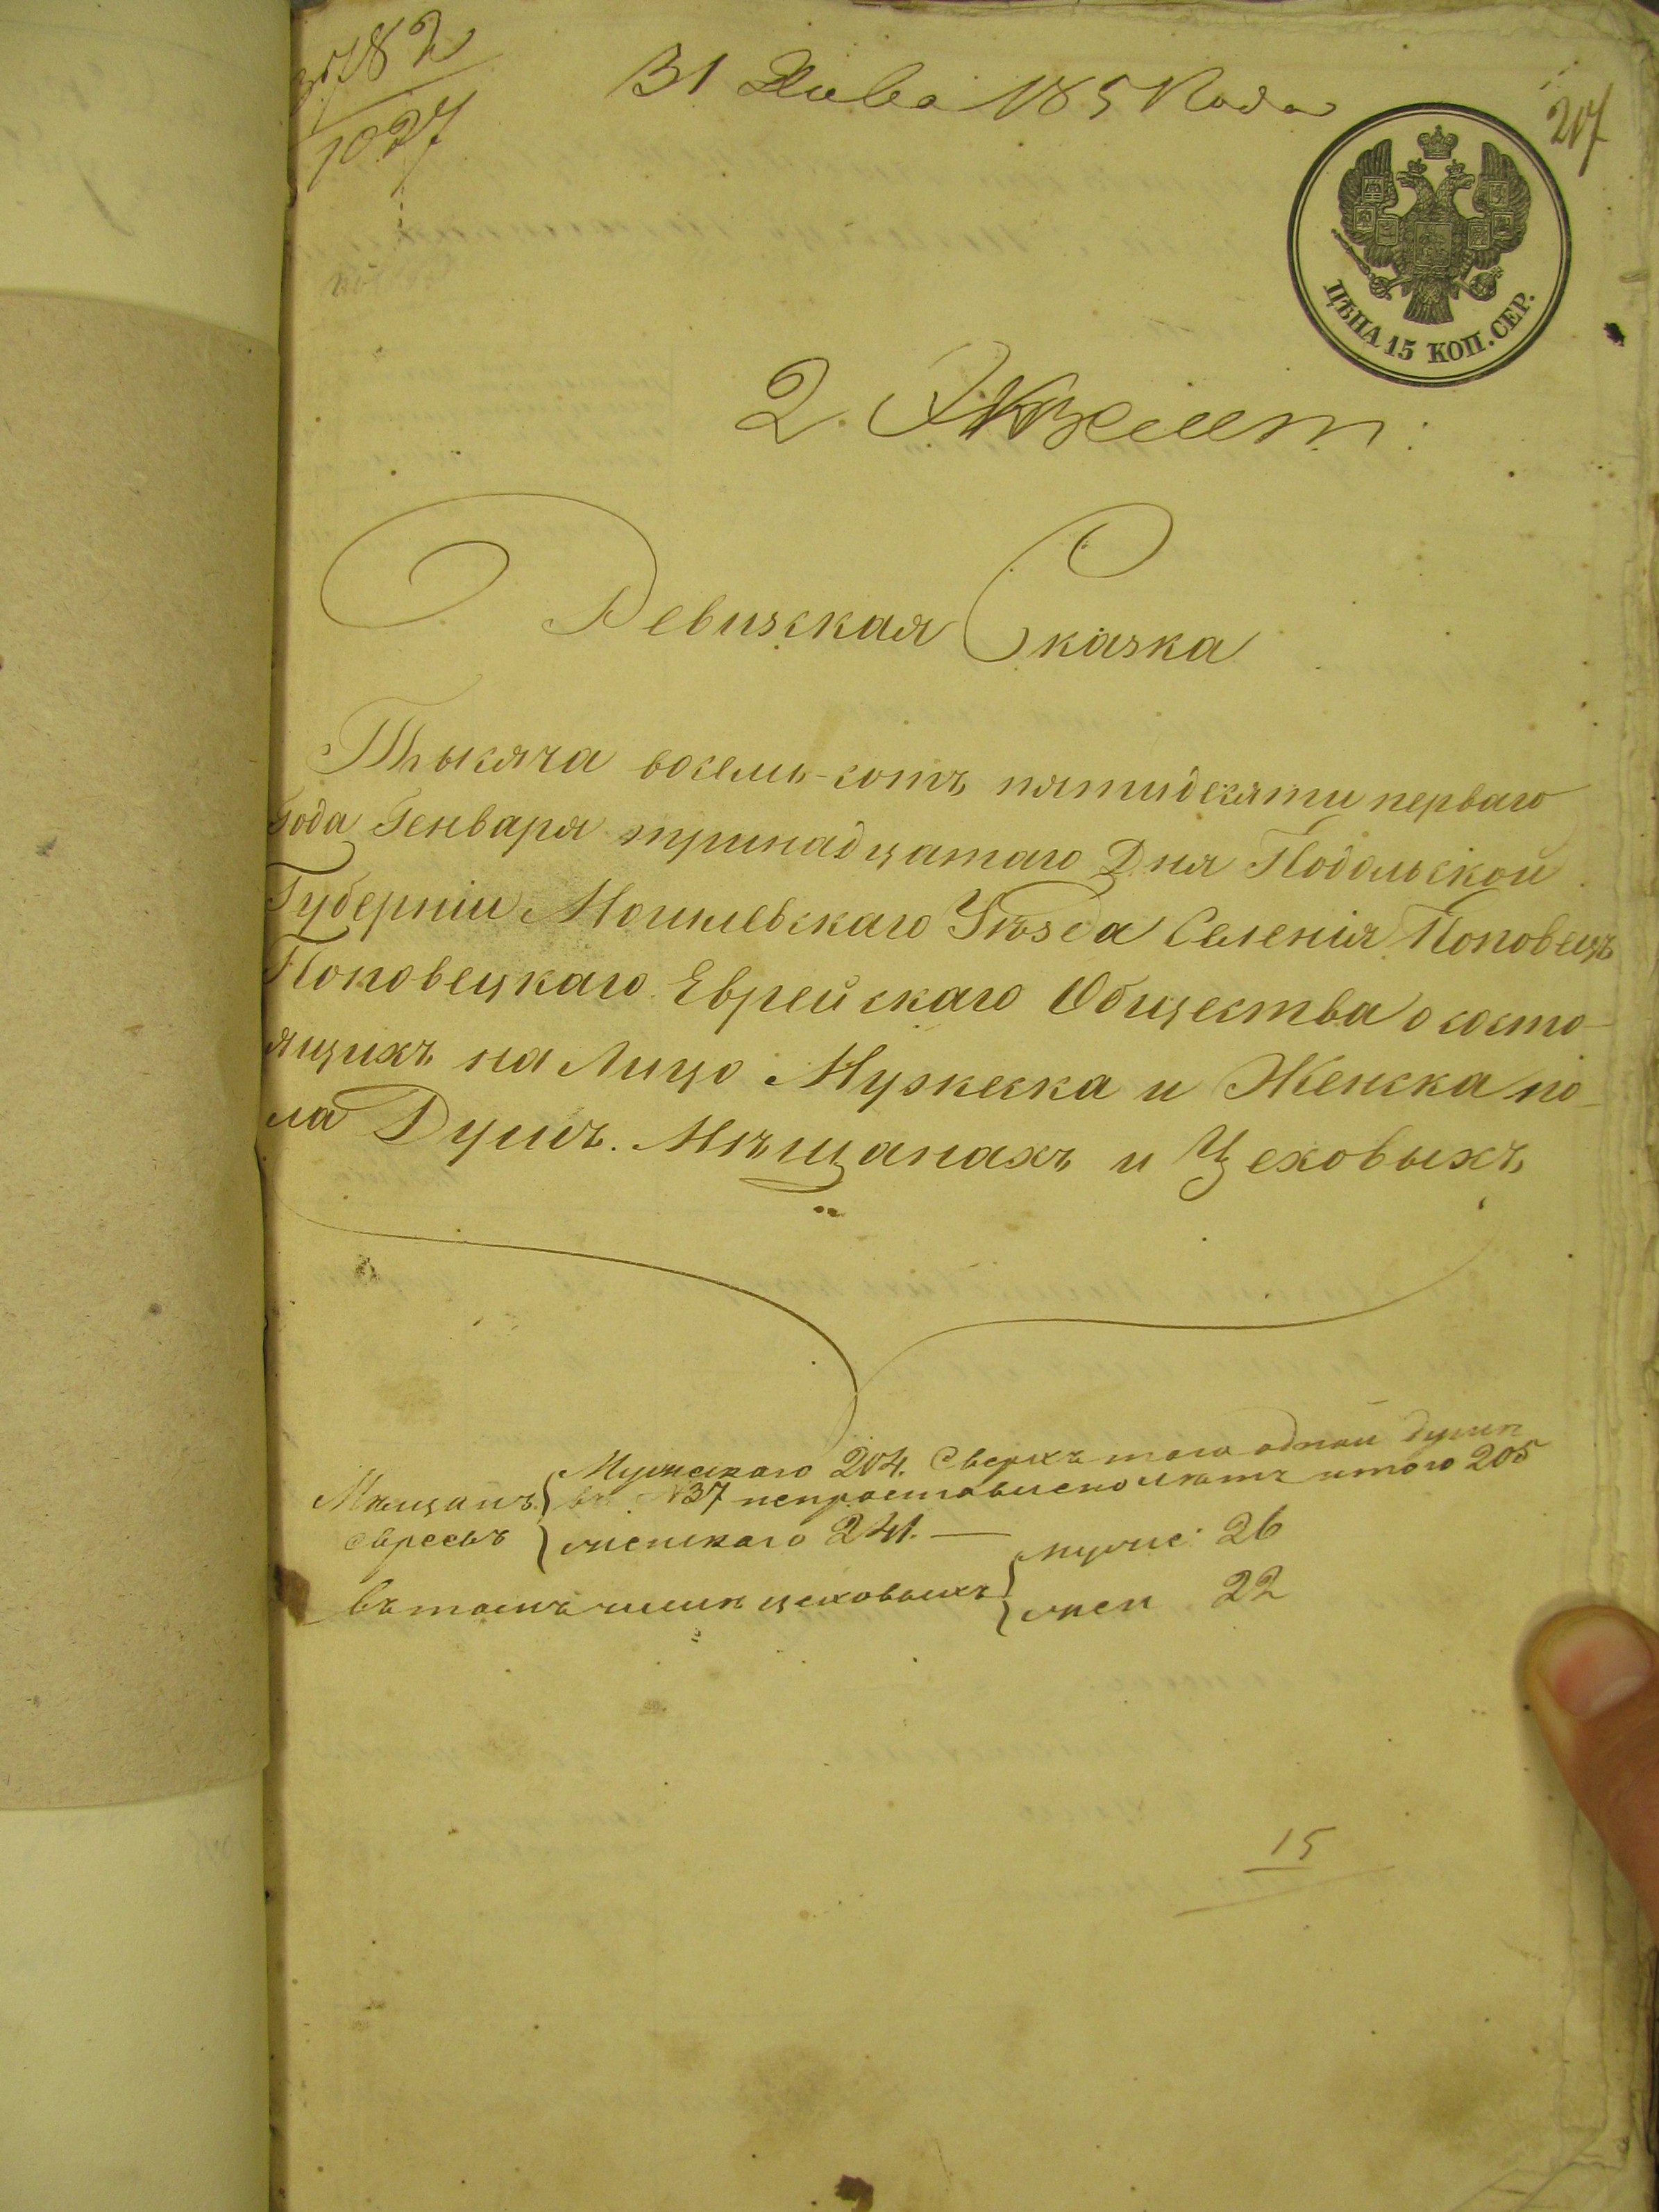 31 Янва 1851 Года
207
1027
ЦѢНА 15 КОП. СЕР.
2. Экземп:
Ревизская Сказка
Тысяча восемь-сотъ пятидесяти перваго
Года Генваря тринадцатаго Дня Подольской
Губерніи Могилевскаго Уѣзда Селенія Поповецъ
Поповецкаго Еврейскаго Общества о состо-
ящихъ на Лицо Мужеска и Женска по-
ла Душъ. Мѣщанахъ и Цеховыхъ
Мужескаго 204. Сверхъ того одной души
Мѣщанъ въ №37 непроставлено лѣтъ итого 205
Евреевъ женскаго 241. —
муже: 26
въ томъ числѣ цеховыхъ
жен 22
15